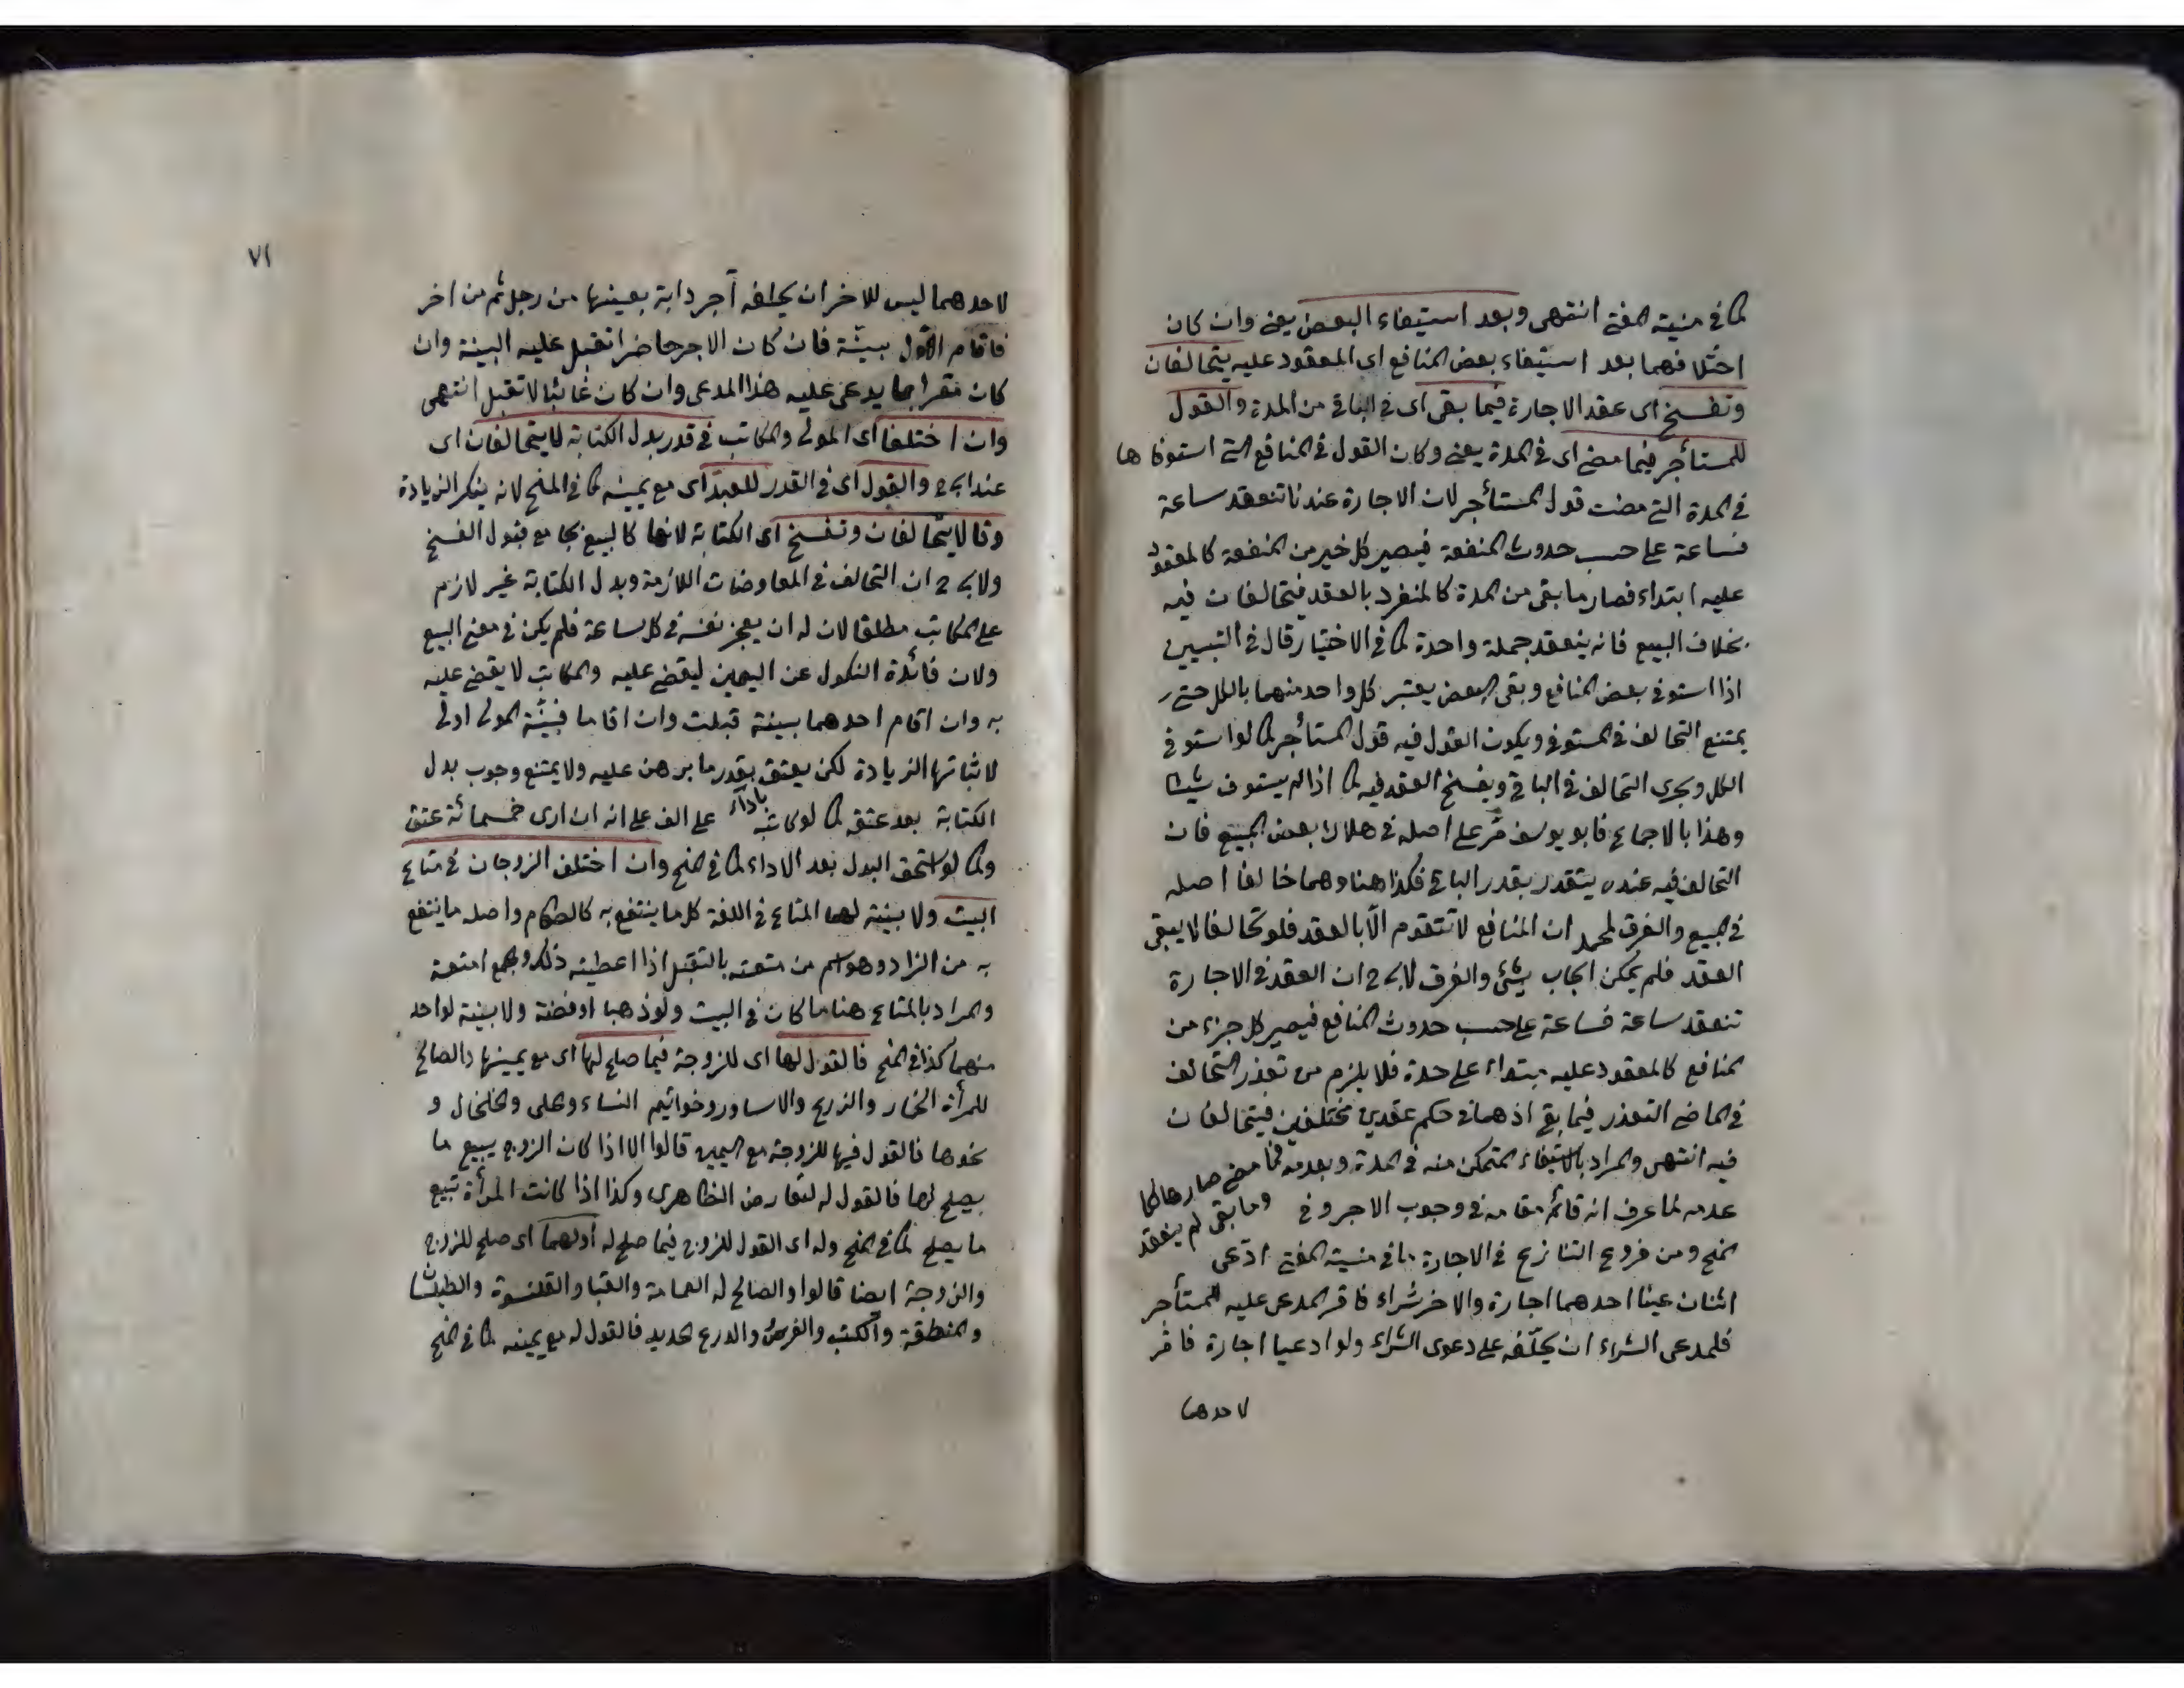 كما في منية المفتي انتهى وبعد استيفاء البعض يعني وان كان
اختلافهما بعد استيفاء بعض المنافع اى المعقود عليه يتحالفان
وتفسخ اى عقد الاجارة فيما بقى اى في الباقي من المدة والقول
للمستأجر فيما مضى اى في المدة يعني وكان القول في المنافع التي استوفاها
في المدة التي مضت قول المستأجر لان الاجارة عندنا تنعقد ساعة
فساعة على حسب حدوث المنفعة فيصير كل خير من المنفعة كالمعقود
عليه ابتداء فصار ما بقى من المدة كالمنفرد بالعقد فيتحالفان فيه
بخلاف البيع فانه ينعقد جملة واحدة كما في الاختيار قال في التبيين
اذا استوفى بعض المنافع وبقى البعض يعتبر كل واحد منهما بالكل حتى
يمتنع التحالف في المستوفى ويكون القول فيه قول المستأجر كما لو استوفى
الكل ويجرى التحالف في الباقي ويفسخ العقد فيه كما اذا لم يستوف شيئا
وهذا بالاجماع فابو يوسف مر على اصله في هلاك بعض المبيع فان
التحالف فيه عنده يتقدر بقدر الباقي فكذا هنا وهما خالفا اصله
في المبيع والفرق لمحمد ان المنافع لا تتقوم الا بالعقد فلو تحالفا لا يبقى
العقد فلم يمكن ايجاب شئ والفرق لابى ح ان العقد في الاجارة
تنعقد ساعة فساعة على حسب حدوث المنافع فيصير كل جزء من
المنافع كالمعقود عليه مبتداء على حدة فلا يلزم من تعذر التحالف
في الماضى التعذر فيما بقى اذ هما في حكم عقدين مختلفين فيتحالفان
فيه انتهى والمراد بالاستيفاء المتمكن منه في المدة وبعدمه فما مضى صار هالكا
عدمه لما عرف انه قائم مقامه في وجوب الاجر وفي وما بقى لم يعقد
المنح ومن فروع التنازع في الاجارة ما في منية المفتي ادعى
اثنان عينا احدهما اجارة والاخر شراء فاقر المدعى عليه للمستأجر
فلمدعى الشراء ان يحلفه على دعوى الشراء ولو ادعيا اجارة فاقر
لاحدهما
٧١
لاحدهما ليس للاخر ان يحلفه آجر دابة بعينها من رجل ثم من اخر
فاقام الاول بينة فان كان الاجر حاضرا تقبل عليه البينة وان
كان مقرا بما يدعى عليه هذا المدعى وان كان غائبا لا تقبل انتهى
وان اختلفا اى المولى والمكاتب في قدر بدل الكتابة لا يتحالفان اى
عند ابى ح والقول اى في القدر للعبد اى مع يمينه كما في المنح لانه ينكر الزيادة
وقالا يتحالفان وتفسخ اى الكتابة لانها كالبيع بجامع قبول الفسخ
ولابى ح ان التحالف في المعاوضات اللازمة وبدل الكتابة غير لازم
على المكاتب مطلقا لان له ان يعجز نفسه في كل ساعة فلم يكن في معنى البيع
ولان فائدة النكول عن اليمين ليقضى عليه والمكاتب لا يقضى عليه
به وان اقام احدهما بينة قبلت وان اقاما فبينة المولى اولى
لاثباتها الزيادة لكن يعتق بقدر ما برهن عليه ولا يمتنع وجوب بدل
الكتابة بعد عتقه كما لو كاتبه باداء على الف على انه ان ادى خمسمائة عتق
وكما لو استحق البدل بعد الاداء كما في المنح وان اختلف الزوجان في متاع
البيت ولا بينة لهما المتاع في اللغة كل ما ينتفع به كالطعام واصله ما ينتفع
به من الزاد وهو اسم من متعته بالتثقيل اذا اعطيته ذلك وجمع امتعة
والمراد بالمتاع هنا ما كان في البيت ولو ذهبا او فضة ولا بينة لواحد
منهما كذا في المنح فالقول لها اى للزوجة فيما صلح لها اى مع يمينها والصالح
للمرأة الخمار والدرع والاساور وخواتيم النساء وحلى والخلخال و
نحوها فالقول فيها للزوجة مع اليمين قالوا الا اذا كان الزوج يبيع ما
يصلح لها فالقول له لتعارض الظاهرين وكذا اذا كانت المرأة تبيع
ما يصلح كما في المنح وله اى القول للزوج فيما صلح له او لهما اى صلح للزوج
والزوجة ايضا قالوا والصالح له العمامة والقبا والقلنسوة والطيلسان
والمنطقة والكتب والفرس والدرع الحديد فالقول له مع يمينه كما في المنح